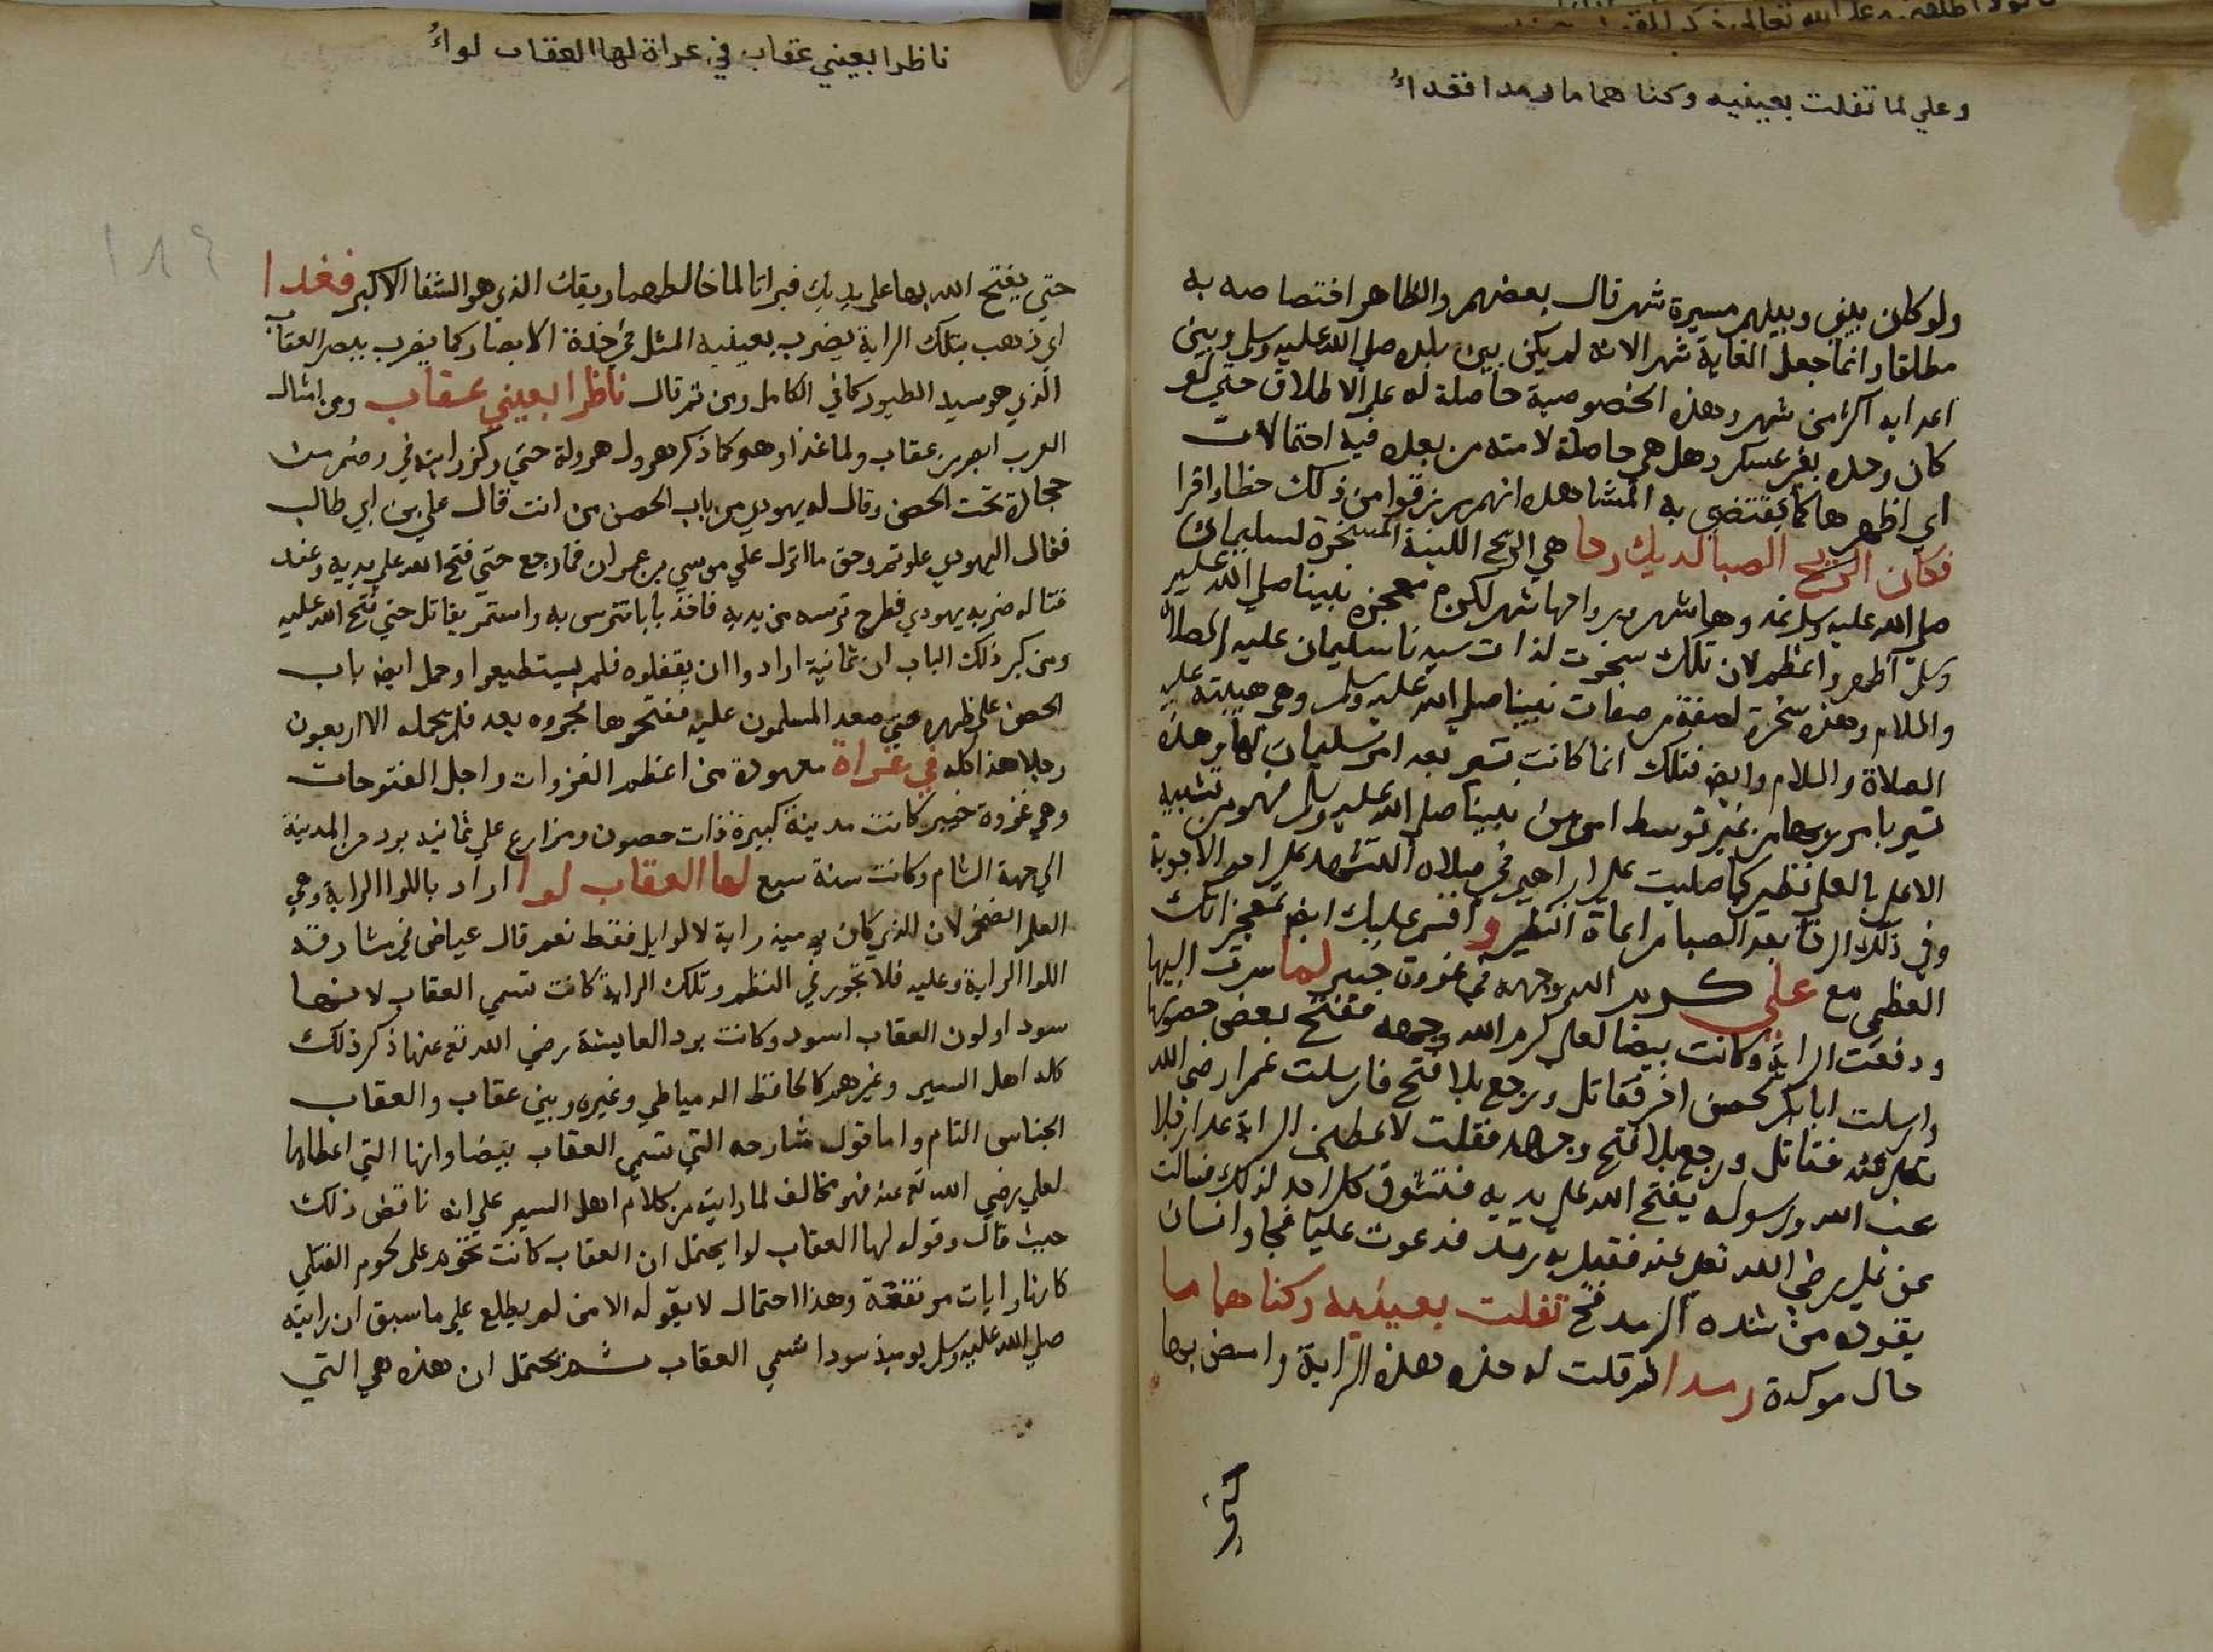 وعلي لما تفلت بعينيه وكلتاهما معا رمداء
ولو كان بيني وبينهم مسيرة شهر قال بعضهم والظاهر اختصاصه به
مطلقا وانما جعل الغاية شهر الانه لم يكن بين بلده صلى الله عليه وسلم وبين
اعدايه اكثر من شهر وهذه الخصوصية حاصلة له على الاطلاق حتي لو
كان وحده بغير عسكر وهل هي حاصلة لامته من بعده فيه احتمالات
اي اظهرها كما يقتضي به المشاهده انهم رزقوا من ذلك حظا وافرا
فكان الريح الصبا لديك رخا هي الريح اللينة المسخرة لسليمان
صلي الله عليه وسلم غدوها شهر ورواحها شهر لكن معجزه نبينا صلي الله عليه
وسلم اظهر واعظم لان تلك سخرت لذات سيدنا سليمان عليه الصلاة
والسلام وهذه سخرة لصفة من صفات نبينا صلي الله عليه وسلم وهي هيبته عليه
الصلاة والسلام وايض فتلك انما كانت تسير بعد امر سليمان لها وهذه
تسير بامر ربها من غير توسط امر من نبينا صلي الله عليه وسلم فهو من تشبيه
الاعلي بالعلي نظير كما صليت علي ابراهيم في صلاة التشهد علي احد الاجوبة
وفي ذلك الرخا بعد الصبا مراعاة النظير و اقسم عليك ايض بمعجزاتك
العظمي مع علي كرم الله وجهه في غزوة خيبر لما سرت اليها
ودفعت الراية وكانت بيضا لعلي كرم الله وجهه ففتح بعض حصونها
وارسلت ابا بكر لحصن اخر فقاتل ورجع بلا فتح فارسلت عمر رضي الله
تعالي عنه فقاتل ورجع بلا فتح وجهد فقلت لاعطين الراية غدا رجلا
يحب الله ورسوله يفتح الله علي يديه فتشوق كل احد لذلك فسالت
عن علي رضي الله تعالي عنه فقيل به رمد فدعوت عليا فجا وانسان
يقوده من شدة الرمد فح تفلت بعينيه وكلتاهما معا
حال موكدة رمدا ثم قلت له خذ هذه الراية وامض بها
حتي
ناظرا بعيني عقاب في غزاة لها العقاب لواء
١٨٤
حتي يفتح الله بها علي يديك فبراتا لما خالطهما ريقك الذي هو الشفا الاكبر فغدا
اي ذهب بتلك الراية يضرب بعينيه المثل في حدة الابصار كما يضرب ببصر العقاب
الذي هو سيد الطيور كما في الكامل ومن ثم قال ناظرا بعيني عقاب ومن امثال
العرب ابصر من عقاب ولما غدا وهو كما ذكر هرول هرولة حتي ركز رايته في رضم من
حجارة تحت الحصن وقال له يهودي من باب الحصن من انت قال علي بن ابي طالب
فقال اليهودي علوتم وحق ما انزل علي موسي بن عمران فما رجع حتي فتح الله علي يديه وعند
قتاله ضربه يهودي فطرح ترسه من يديه فاخذ بابا تترس به واستمر يقاتل حتي فتح الله عليه
ومن كبر ذلك الباب ان ثمانية ارادوا ان يقلبوه فلم يستطيعوا وحمل ايض باب
الحصن علي ظهره حتي صعد المسلمون عليه ففتحوها فجروه بعد فلم يحمله الا اربعون
رجلا هذا كله في غزاة معهودة من اعظم الغزوات واجل الفتوحات
وهي غزوة خيبر كانت مدينة كبيرة ذات حصون ومزارع علي ثمانية برد من المدينة
الي جهة الشام وكانت سنة سبع لها العقاب لوا اراد باللوا الراية وهي
العلم الضخم لان الذي كان يوميذ راية لا لوا بل فقط نعم قال عياض في مشارقه
اللوا الراية وعليه فلا تجوز في النظم وتلك الراية كانت تسمي العقاب لانها
سودا ولون العقاب اسود وكانت برد العايشة رضي الله تع عنها ذكر ذلك
كله اهل السير وغيرهم كالحافظ الدمياطي وغيره وبين عقاب والعقاب
الجناس التام واما قول شارحه التي تسمي العقاب بيضا وانها التي اعطاها
لعلي رضي الله تع عنه فهو مخالف لما رايته من كلام اهل السير علي انه ناقض ذلك
حيث قال وقوله لها العقاب لوا يحتمل ان العقاب كانت تحوم علي لحوم القتلي
كانها رايات مرتفعة وهذا احتمال لا يقوله الا من لم يطلع علي ما سبق ان رايته
صلي الله عليه وسلم يوميذ سودا تسمي العقاب ثم يحتمل ان هذه هي التي